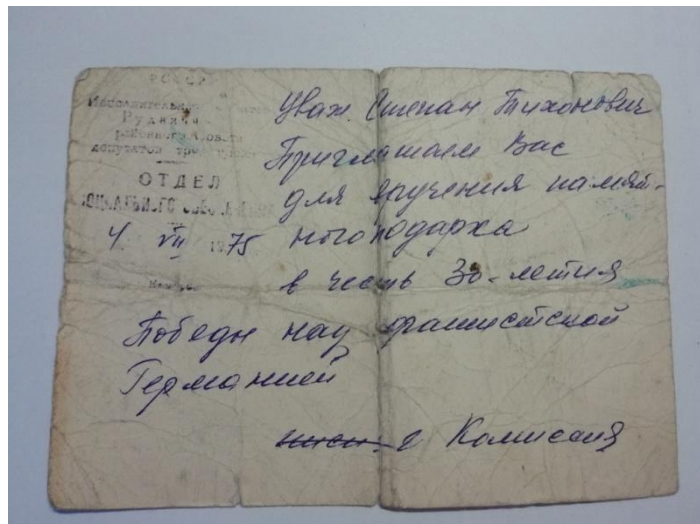 РСФСР
Исполнительный
Рудни
районного Совета
депутатов трудящихся
ОТДЕЛ
СОЦИАЛЬНОГО ОБЕСПЕЧЕНИЯ
4 VII 1975
Уваж. Степан Тихонович
Приглашаем Вас
для вручения памят-
ного подарка
в честь 30-летия
Победы над фашистской
Германией
Комиссия